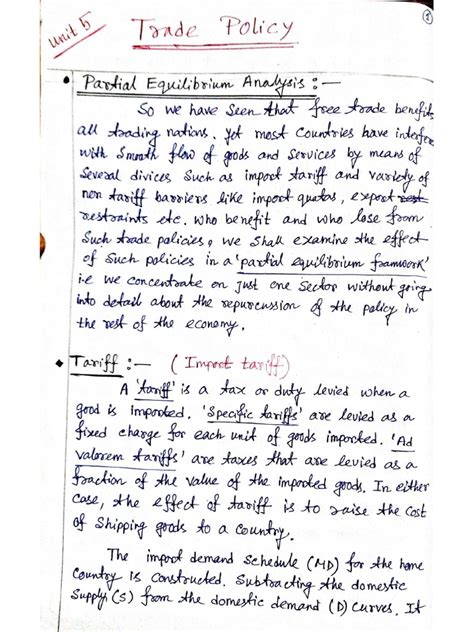 1
Unit 5
Trade Policy
• Partial Equilibrium Analysis :—
So we have seen that free trade benefits
all trading nations. Yet most countries have interfere
with smooth flow of goods and services by means of
several divices such as import tariff and variety of
non tariff barriers like import quotas, export
restraints etc. who benefit and who lose from
such trade policies, we shall examine the effect
of such policies in a 'partial equilibrium framework'
i.e we concentrate on just one sector without going
into detail about the repurcussion of the policy in
the rest of the economy.
• Tariff :— (Import tariff)
A 'tariff' is a tax or duty levied when a
good is imported. 'Specific tariffs' are levied as a
fixed charge for each unit of goods imported. 'Ad
valorem tariffs' are taxes that are levied as a
fraction of the value of the imported goods. In either
case, the effect of tariff is to raise the cost
of shipping goods to a country.
The import demand schedule (MD) for the home
country is constructed. Subtracting the domestic
Supply (S) from the domestic demand (D) curves. It